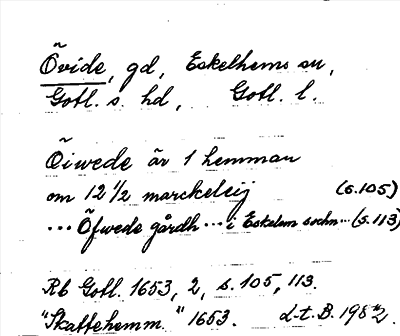 Övide, gd, Eskelhems sn,
Gotl. s. hd, Gotl. l.
Öiwede är 1 hemman
om 12 1/2 marckeleij (s.105)
... Öfwede gårdh ... i Eskelem sochn... (s.113)
Rb Gotl. 1653, 2, s. 105, 113.
"Skattehemm." 1653. L.t.B. 1982